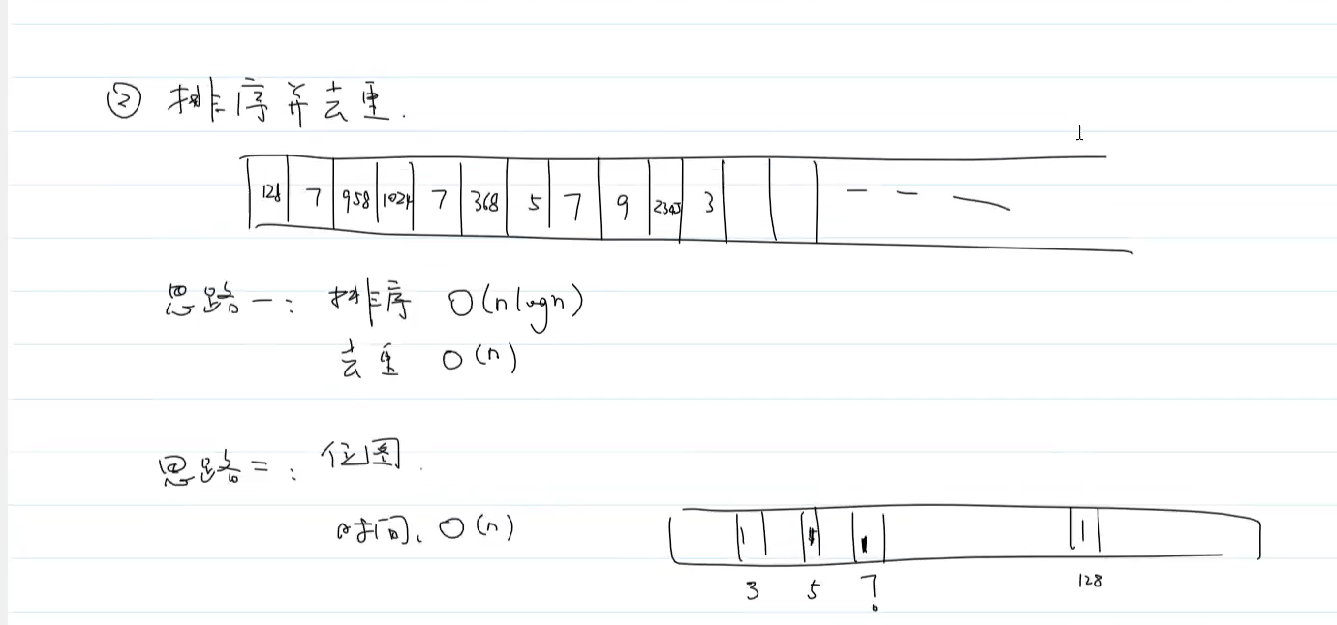 ② 排序并去重.
128 7 958 1024 7 368 5 7 9 2345 3
思路一: 排序 O(nlogn)
去重 O(n)
思路二: 位图.
时间、O(n)
1 1 1 1
3 5 7 128